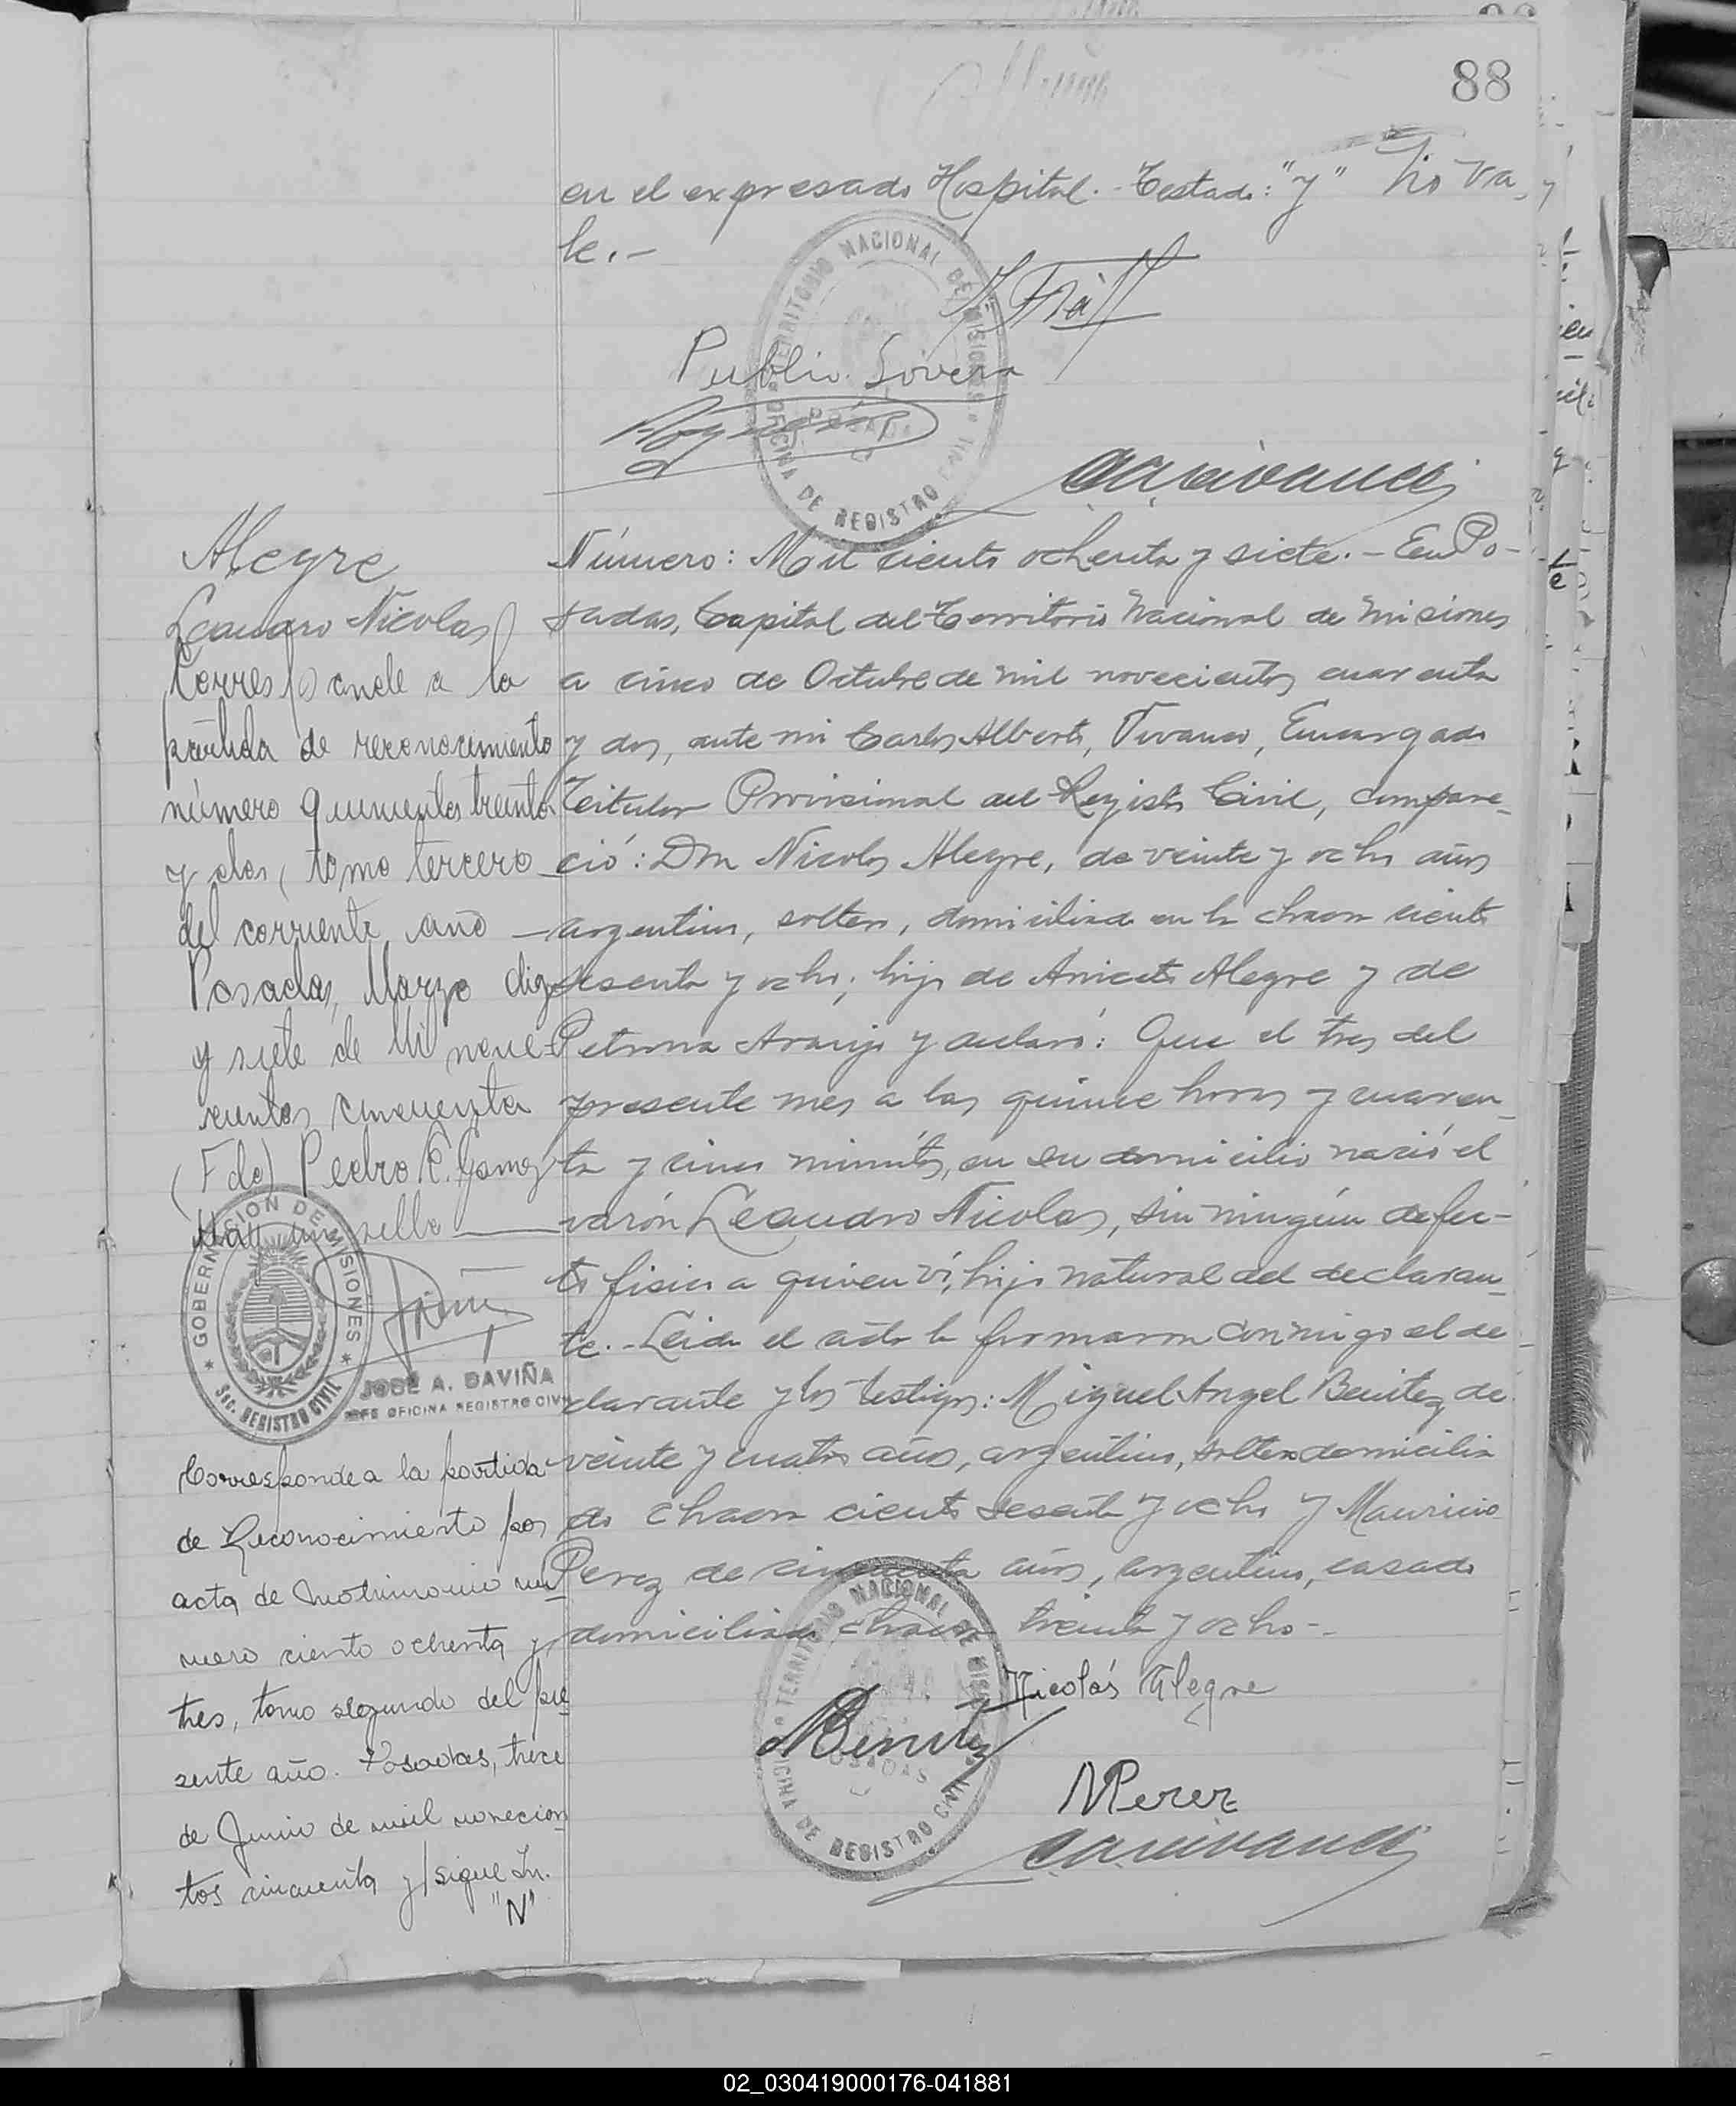 88
en el expresado Hospital. - Testado: "y" No va-
le. -
Publio Lovera
Número: Mil ciento ochenta y siete. - En Po-
sadas, Capital del Territorio Nacional de Misiones
a cinco de Octubre de mil novecientos cuarenta
y dos, ante mi Carlos Alberto, Vivanco, Encargado
Titular Provisional del Registro Civil, compare-
ció: Don Nicolas Alegre, de veinte y ocho años
argentino, soltero, domiciliado en la chacra ciento
sesenta y ocho; hijo de Aniceto Alegre y de
Petrona Araujo y declaró: Que el tres del
presente mes a las quince horas y cuaren-
ta y cinco minutos, en su domicilio nació el
varón Leandro Nicolas, sin ningún defec-
to fisico a quien ví, hijo natural del declaran-
te. - Leida el acta la firmaron conmigo el de-
clarante y los testigos: Miguel Angel Benitez de
veinte y cuatro años, argentino, soltero domicilia
do chacra ciento sesenta y ocho y Mauricio
Perez de cincuenta años, argentino, casado
domiciliado chacra treinta y ocho -.
Nicolás Alegre
MBenitez
MPerez
Alegre
Leandro Nicolas
Corresponde a la
partida de reconocimiento
número quinientos treinta
y dos, tomo tercero
del corriente año —
Posadas, Marzo diez
y siete de Mil nove-
cientos cincuenta
(Fdo) Pedro E. Gomez
Hay un sello
GOBERNACION DE MISIONES
Sec. REGISTRO CIVIL
JOSE A. DAVIÑA
JEFE OFICINA REGISTRO CIVIL
Corresponde a la partida
de Reconocimiento por
acta de Matrimonio nú-
mero ciento ochenta y
tres, tomo segundo del pre
sente año. Posadas, trece
de Junio de mil novecien
tos cincuenta y /sigue Ln.
"N"
TERRITORIO NACIONAL DE MISIONES
OFICINA DE REGISTRO CIVIL
POSADAS
TERRITORIO NACIONAL DE MISIONES
OFICINA DE REGISTRO CIVIL
POSADAS
02_030419000176-041881